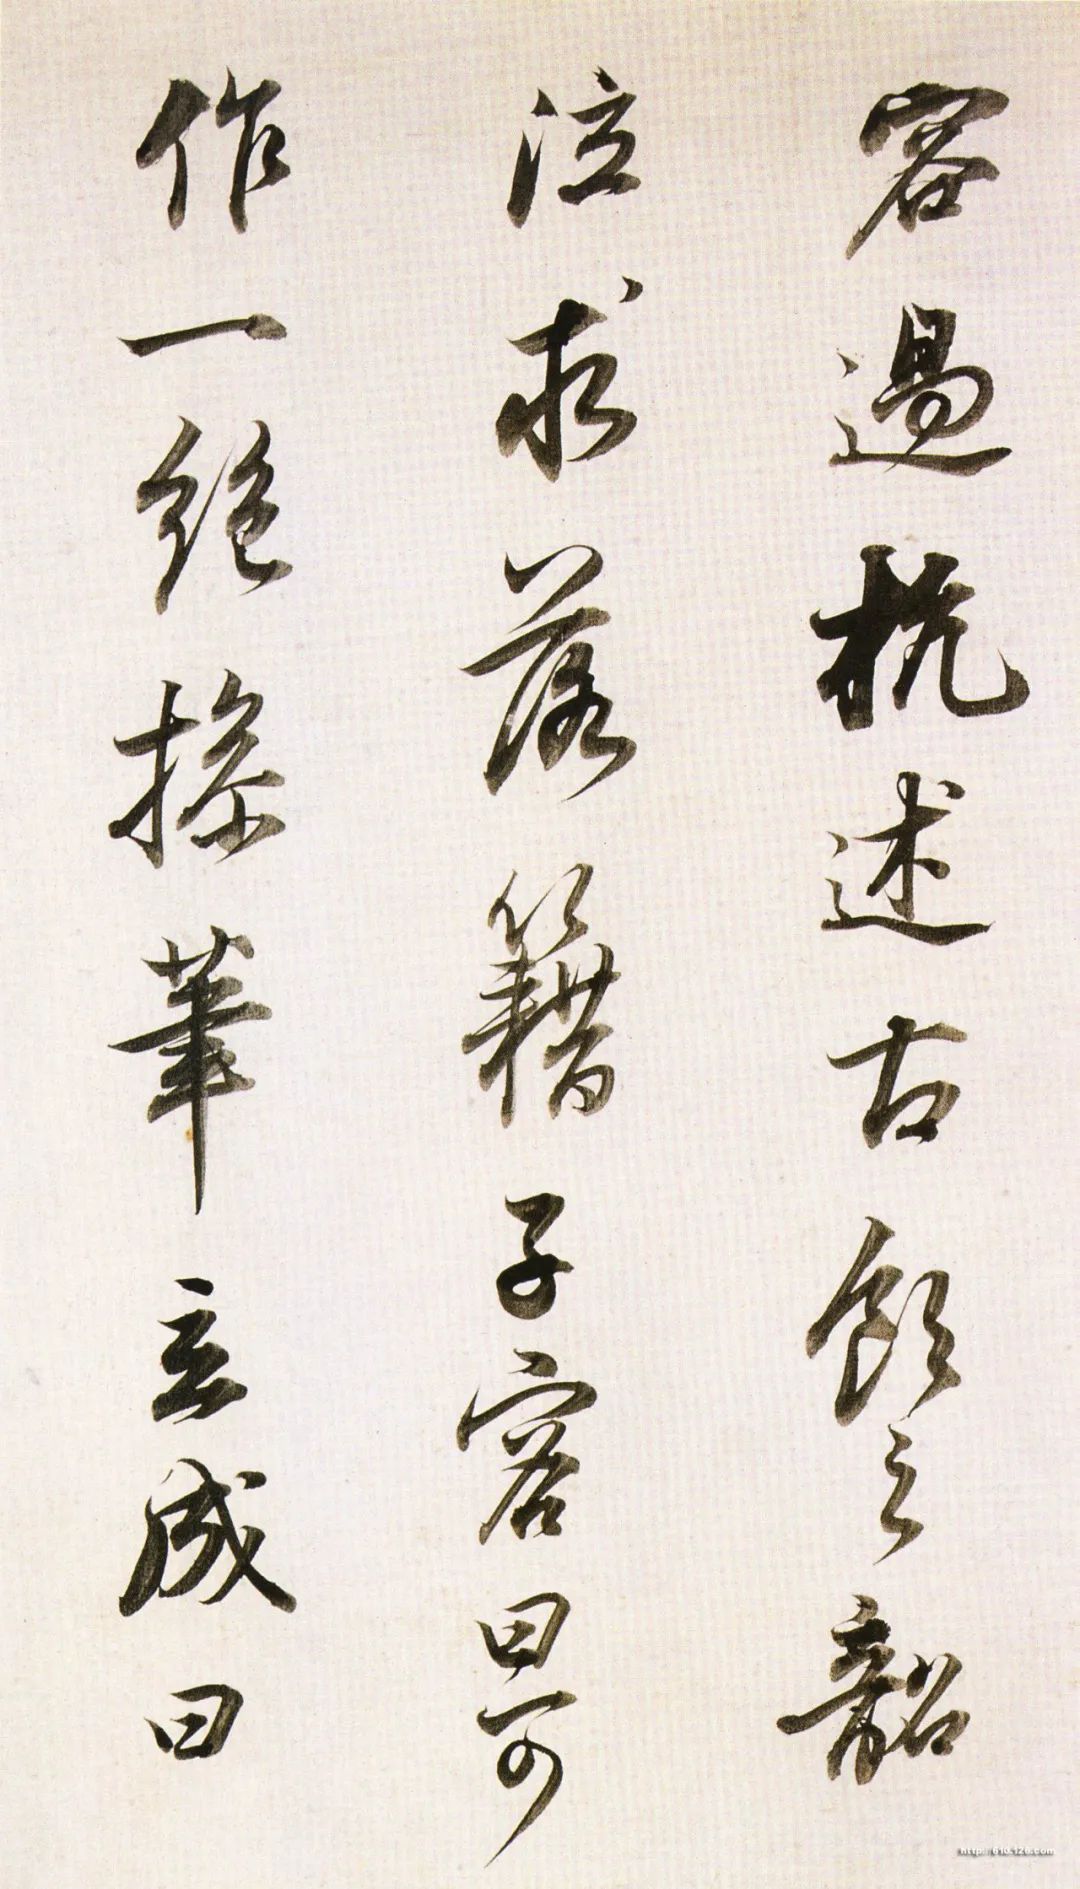 容過杭述古飲之韶
泣求落籍子容曰可
作一絕援筆立成曰
http://610.126.com